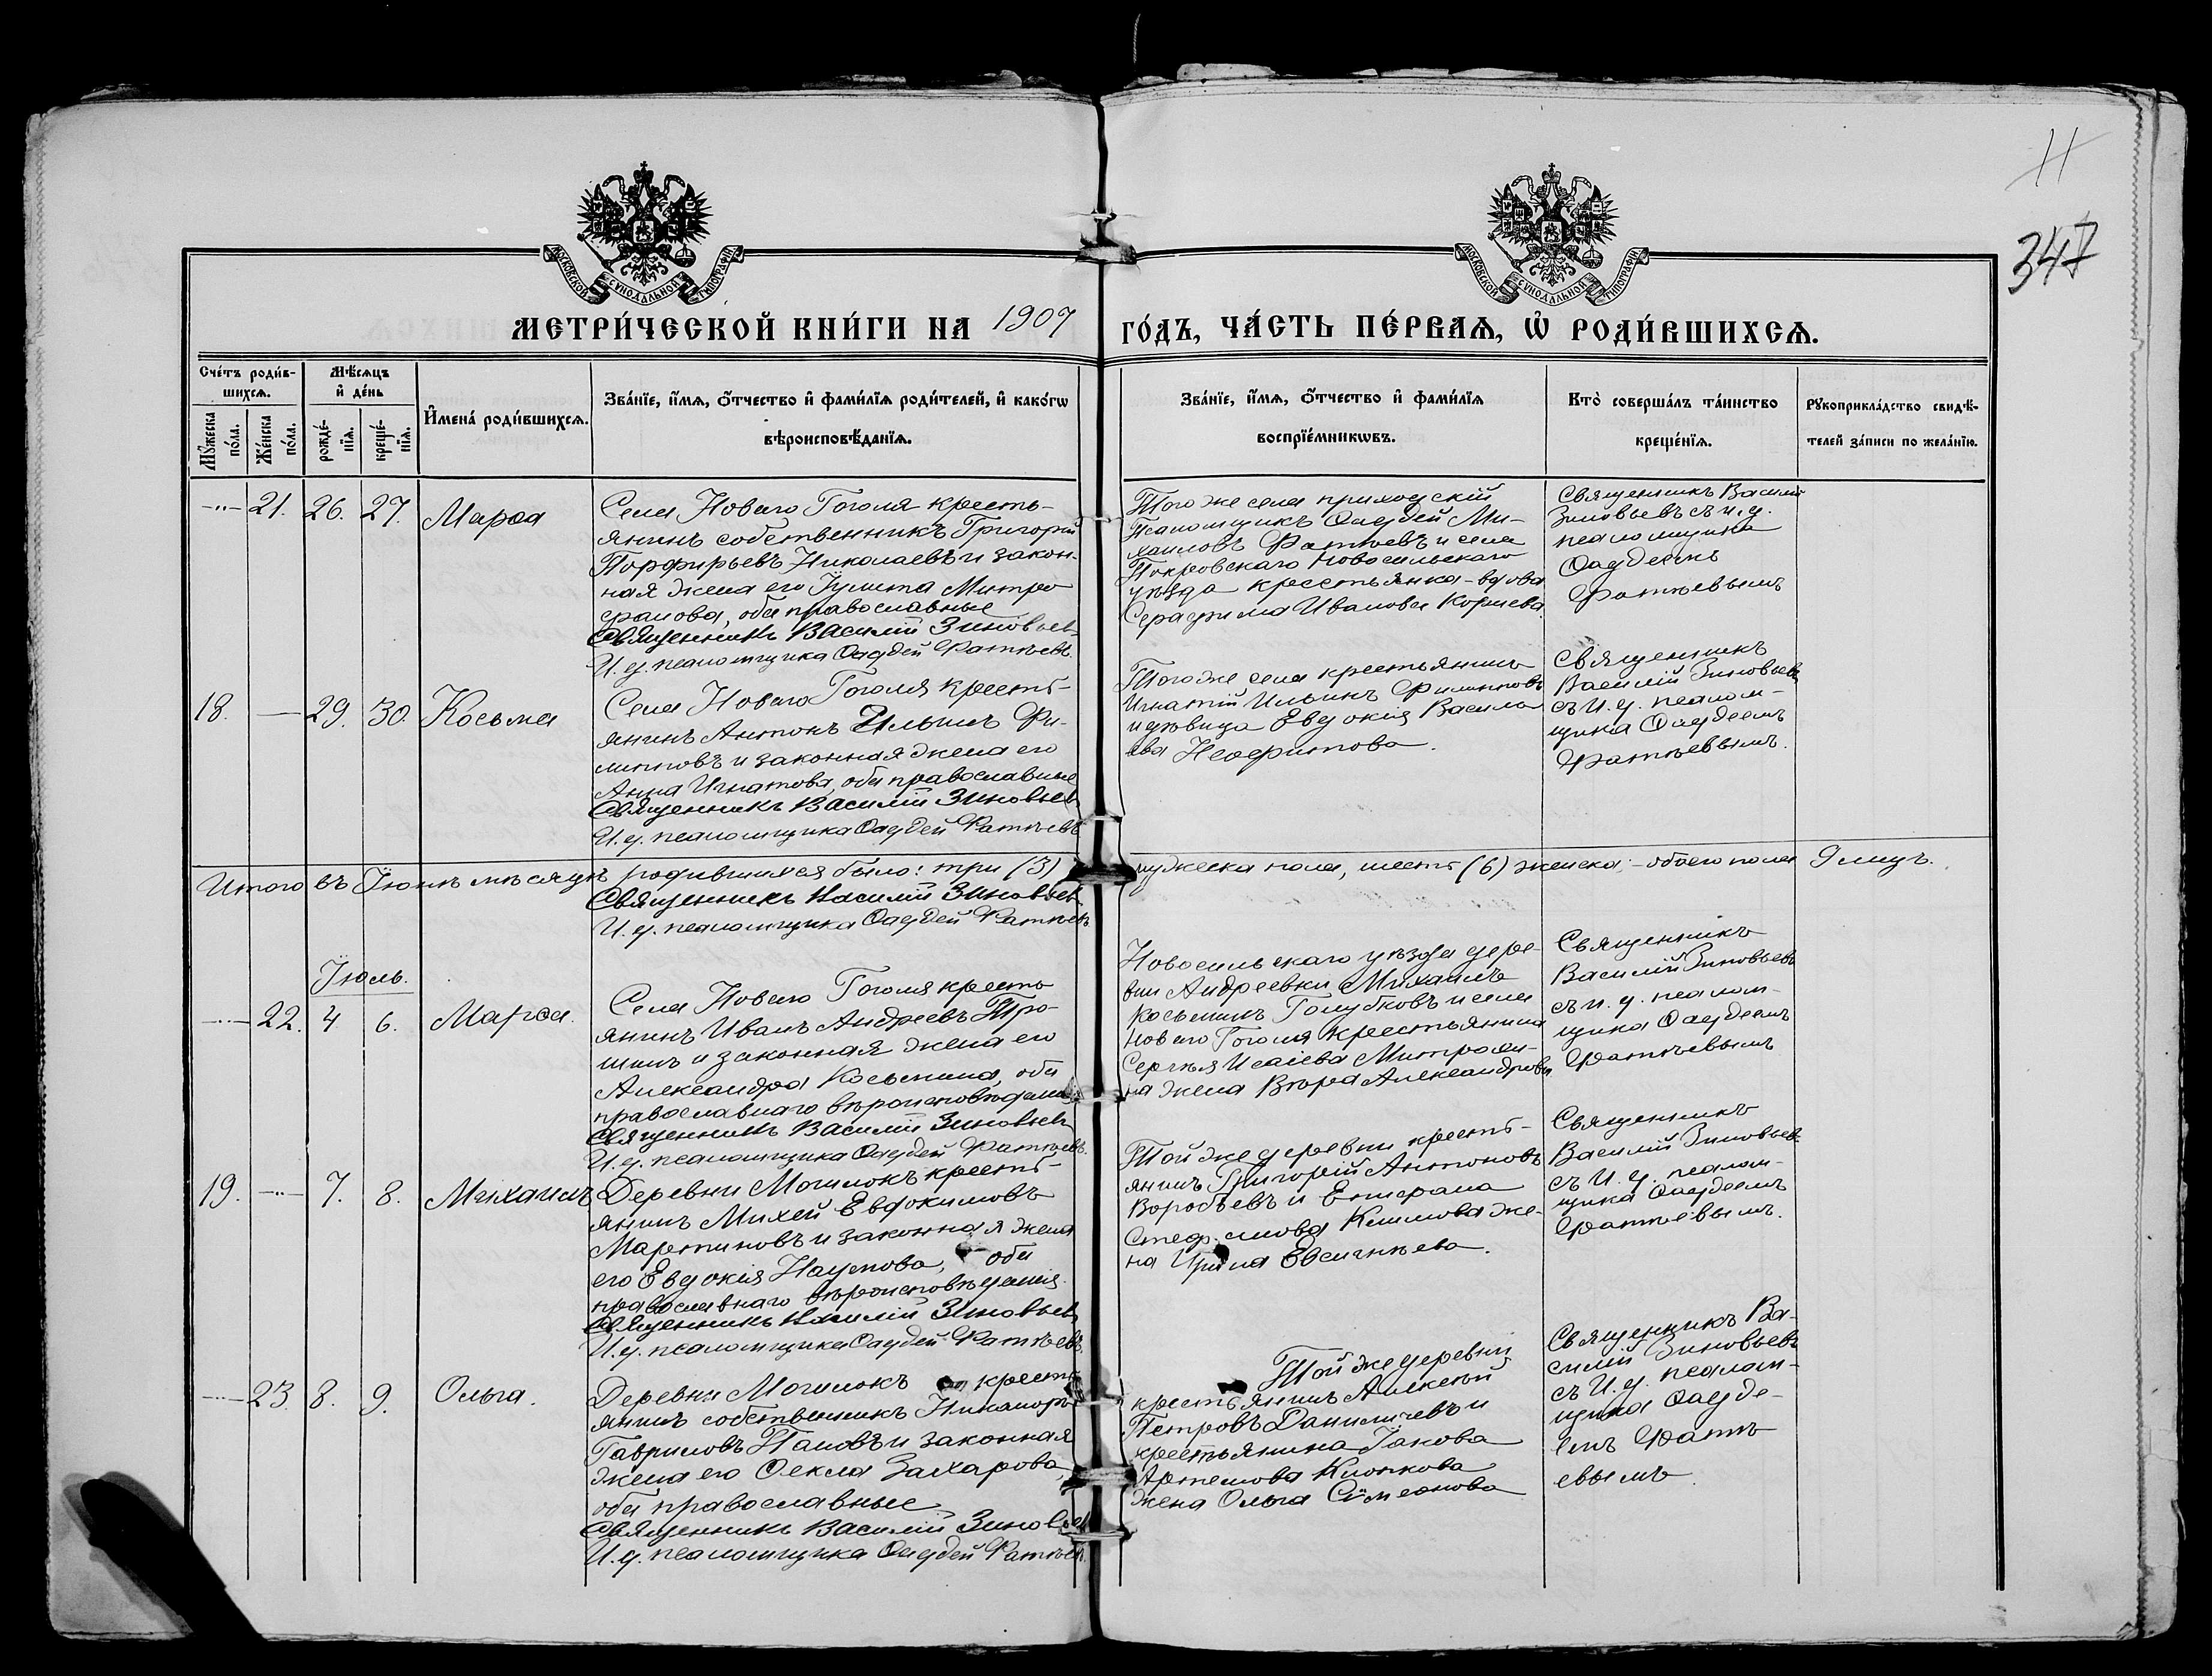 11
347
МОСКОВСКОЙ СѴНОДАЛЬНОЙ ТИПОГРАФІИ
МОСКОВСКОЙ СѴНОДАЛЬНОЙ ТИПОГРАФІИ
МЕТРИ́ЧЕСКОЙ КНИ́ГИ НА 1907 ГО́ДЪ, ЧА́СТЬ ПЕ́РВАѦ, Ѡ РОДИ́ВШИХСѦ.
Сче́тъ роди́в-
шихсѧ.
Мѣ́сѧцъ
и҆ де́нь
Мꙋ́жеска
по́ла.
Же́нска
по́ла.
рожде́-
нїѧ.
креще́-
нїѧ.
И҆мена̀ роди́вшихсѧ.
Зва́нїе, и҆́мѧ, ѻ҆́тчество и҆ фами́лїѧ роди́телей, и҆ како́гѡ
вѣроисповѣ́данїѧ.
Зва́нїе, и҆́мѧ, ѻ҆́тчество и҆ фами́лїѧ
воспрїе́мникѡвъ.
Кто̀ соверша́лъ та́инство
креще́нїѧ.
Рꙋкоприкла́дство свидѣ́-
телей за́писи по жела́нїю.
21. 26. 27. Марѳа
Села Новаго Гоголя кресть-
янинъ собственникъ Григорій
Порфирьевъ Николаевъ и закон-
ная жена его Іулита Митро
фанова, оба православные
Священникъ Василій Зиновьевъ
И. д. псаломщика Ѳаддей Фатѣевъ.
Того же села приходскій
Псаломщикъ Ѳаддей Ми-
хаиловъ Фатѣевъ и села
Покровскаго Новосильскаго
уѣзда крестьянка-вдова
Серафима Иванова Корнева.
Священникъ Василій
Зиновьевъ съ и. д.
псаломщика
Ѳаддеемъ
Фатѣевымъ
18. — 29. 30. Косьма
Села Новаго Гоголя кресть-
янинъ Антонъ Ильинъ Фи-
липповъ и законная жена его
Анна Игнатова, оба православные
Священникъ Василій Зиновьевъ
И. д. псаломщика Ѳаддей Фатѣевъ
Того же села крестьянинъ
Игнатій Ильинъ Филипповъ
и дѣвица Евдокія Василь
ева Неофитова.
Священникъ
Василій Зиновьевъ
съ И. д. псалом-
щика Ѳаддеемъ
Фатѣевымъ.
Итого въ Іюнѣ мѣсяцѣ родившихся было: три (3) мужеска пола, шесть (6) женска; - обоего пола 9 лицъ.
Священникъ Василій Зиновьевъ
И. д. псаломщика Ѳаддей Фатѣевъ
Іюль.
22. 4. 6. Марѳа.
Села Новаго Гоголя кресть
янинъ Иванъ Андреевъ Тро-
шинъ и законная жена его
Александра Косьмина, оба
православнаго вѣроисповѣданія
Священникъ Василій Зиновьевъ
И. д. псаломщика Ѳаддей Фатѣевъ.
Новосильскаго уѣзда дере-
вни Андреевки Михаилъ
Косьминъ Голубковъ и села
Новаго Гоголя крестьянина
Сергѣя Исаіева Митрохи-
на жена Вѣра Александрова
Священникъ
Василій Зиновьевъ
съ и. д. псалом-
щика Ѳаддеемъ
Фатѣевымъ
19. 7. 8. Михаилъ
Деревни Могилокъ кресть-
янинъ Михей Евдокимовъ
Мартиновъ и законная жена
его Евдокія Наумова, оба
православнаго вѣроисповѣданія.
Священникъ Василій Зиновьевъ
И. д. псаломщика Ѳаддей Фатѣевъ.
Той же деревни кресть-
янинъ Григорій Антоновъ
Воробьевъ и Епифана
Климова же-
на Ирина Евсигнѣева.
Священникъ
Василій Зиновьевъ
съ И. д. псалом-
щика Ѳаддеемъ
Фатѣевымъ.
23. 8. 9. Ольга.
Деревни Могилокъ кресть
янинъ собственникъ Никаноръ
Гавриловъ Пановъ и законная
жена его Ѳекла Захарова,
оба православные
Священникъ Василій Зиновьевъ
И. д. псаломщика Ѳаддей Фатѣевъ.
Той же деревни
крестьянинъ Алексѣй
Петровъ Даниличевъ и
крестьянина Іакова
Артемова Клопкова
жена Ольга Сѵмеонова
Священникъ Ва-
силій Зиновьевъ
съ И. д. псалом-
щика Ѳадде-
емъ Фатѣ
евымъ.